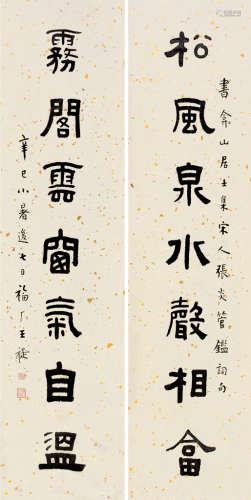 松風泉水聲相龠
書龠山居士集宋人張炎管鑑詞句
霧閣雲窗氣自溫
辛巳小暑後七日福厂王褆